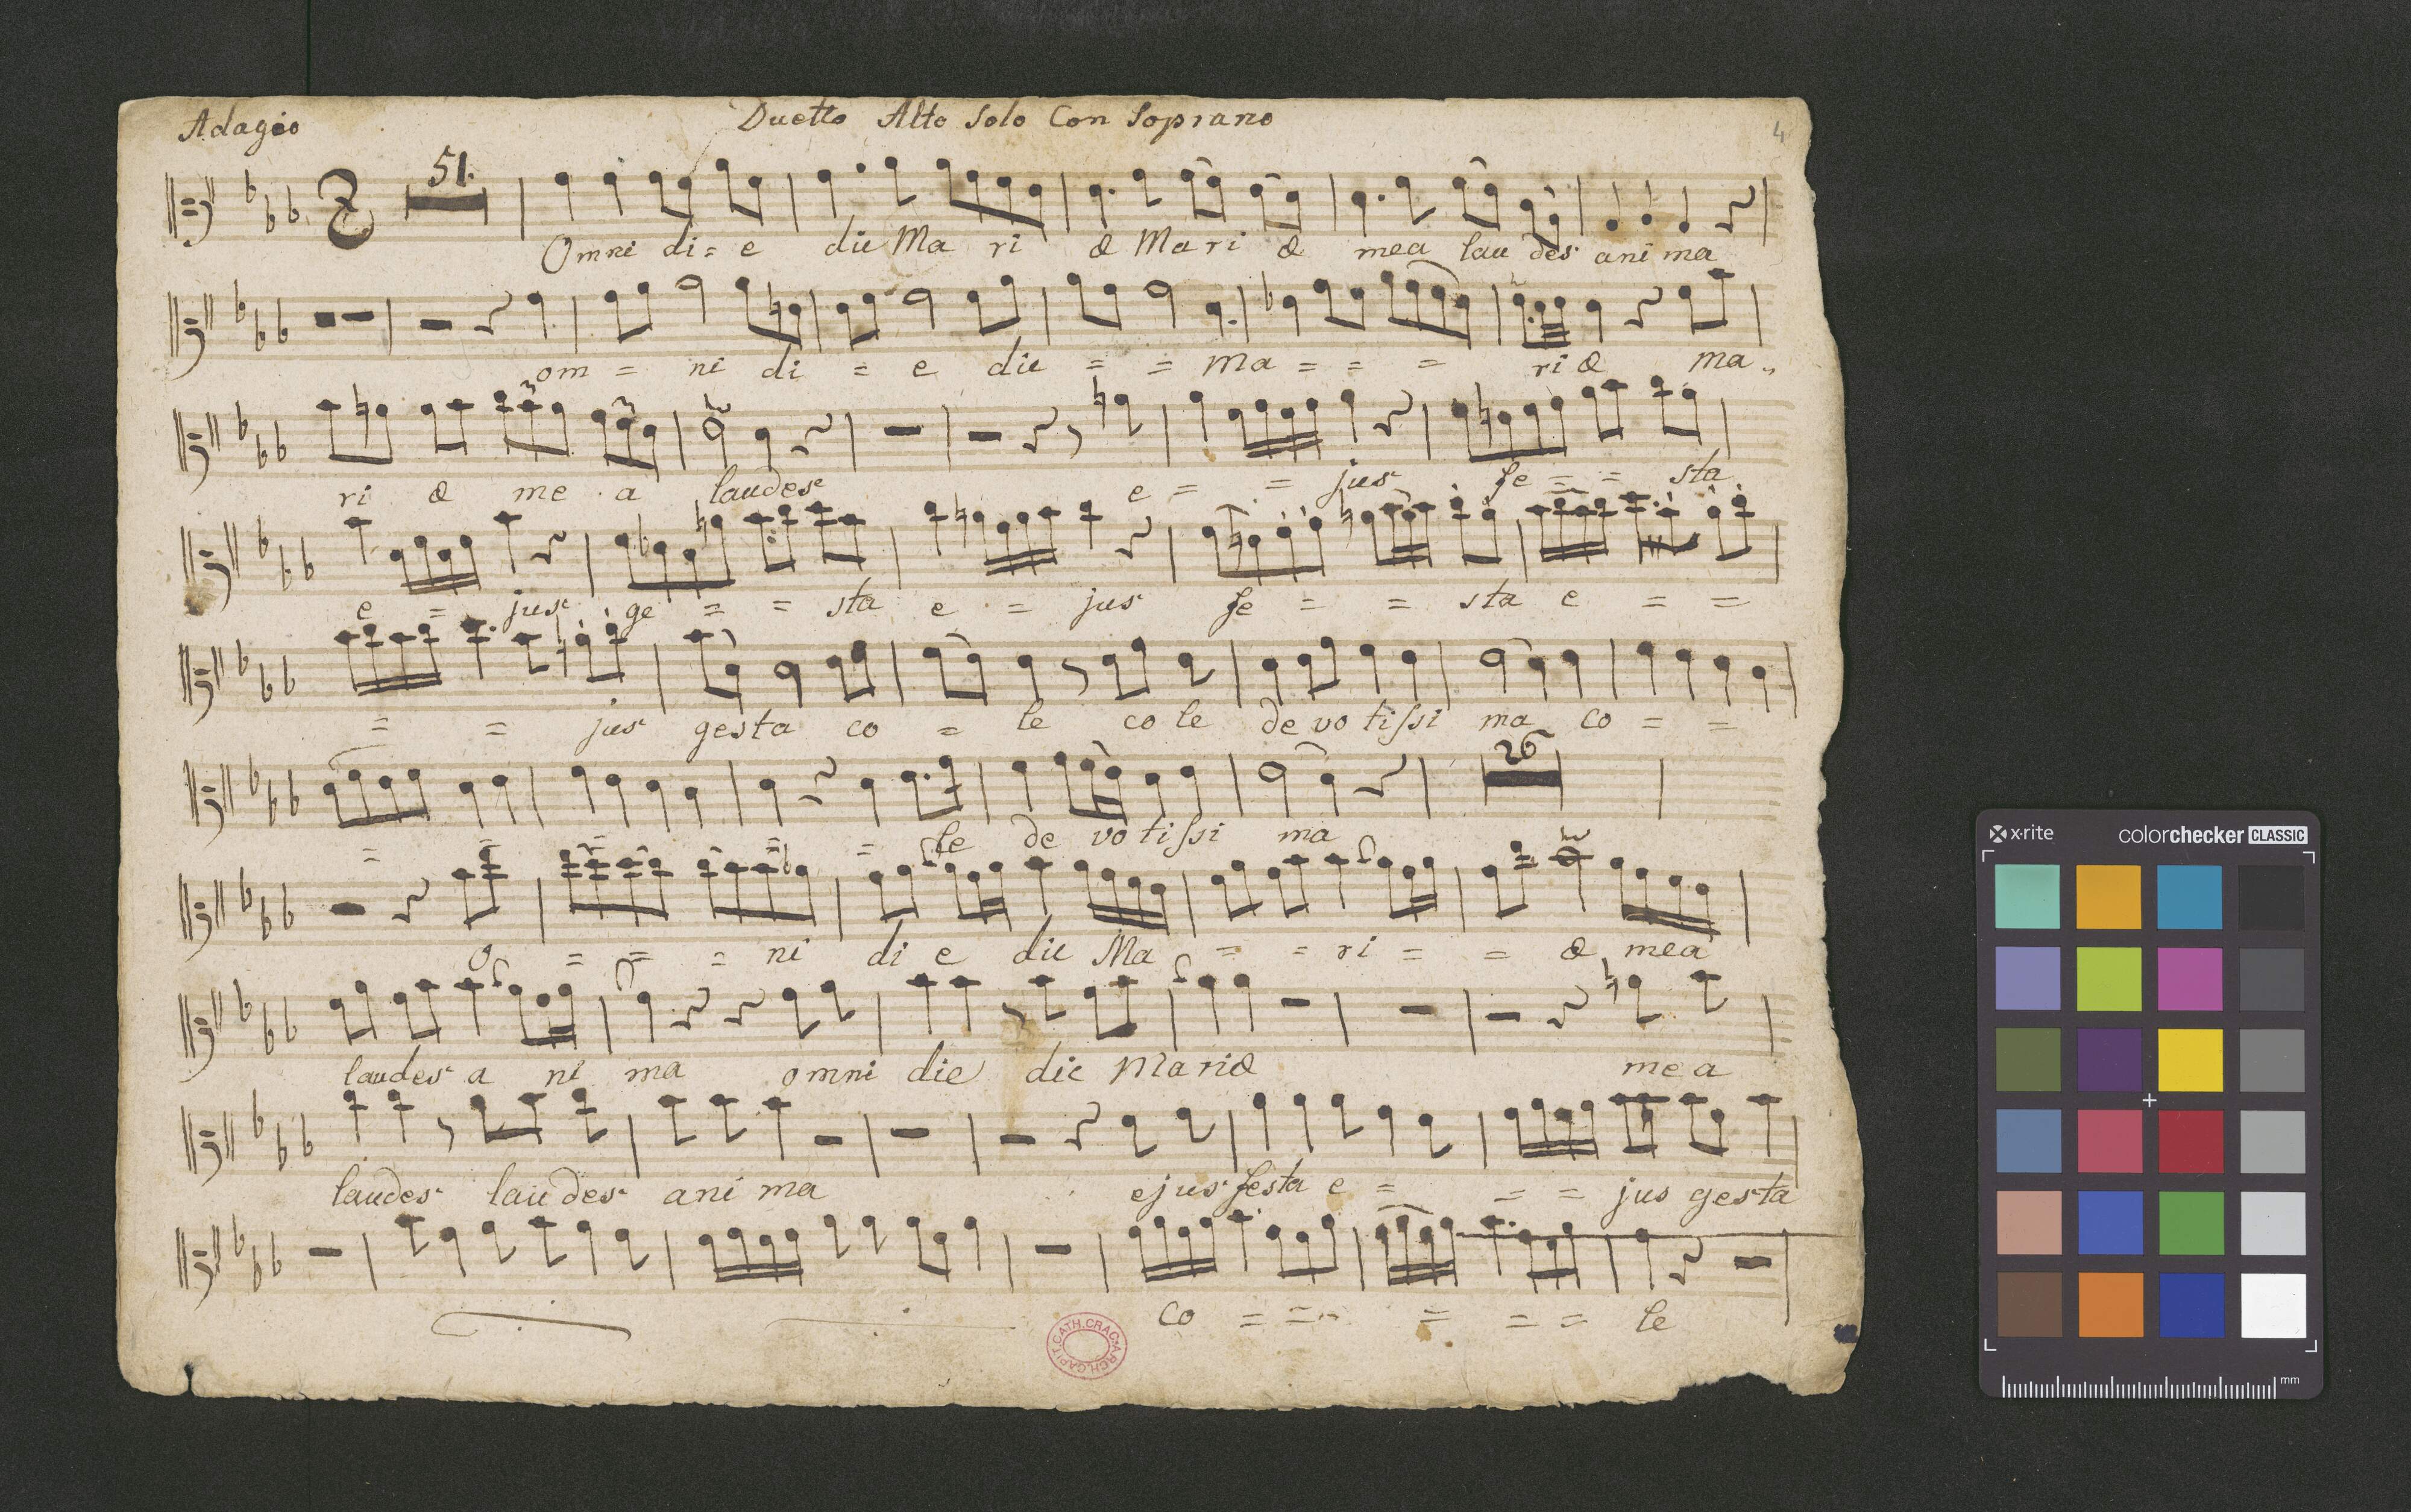 Adagio Duetto Alto Solo Con Soprano 4
51.
Omni di = e dic Ma ri æ Ma ri æ mea lau des ani ma
om = ni di = e dic = = Ma = = = ri æ ma
3 3
ri æ me a laudes e = = jus fe = = sta
e = jus ge = = sta e = jus fe = = sta e = =
= = jus gesta co = le co le de vo tissi ma co = =
26
= = = = = le de vo tissi ma
O = = = ni di e dic Ma = = ri = = æ mea
laudes a ni ma omni die dic Mariæ mea
laudes laudes ani ma ejus festa e = = = jus gesta
co = = = = = = le
CATH.CRAC. ARCH.CAPIT.
x-rite colorchecker CLASSIC
mm